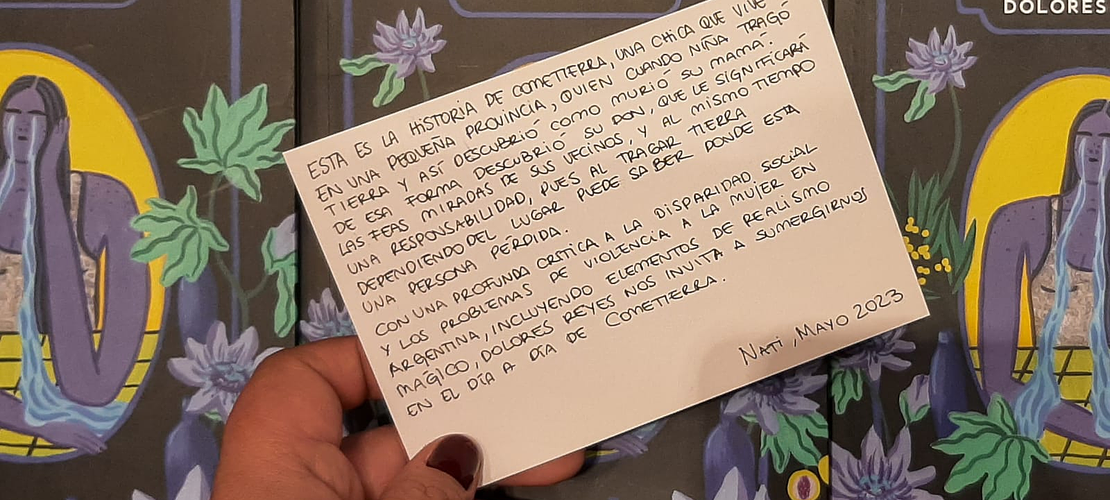 DOLORES
ESTA ES LA HISTORIA DE COMETIERRA, UNA CHICA QUE VIVE
EN UNA PEQUEÑA PROVINCIA, QUIEN CUANDO NIÑA TRAGÓ
TIERRA Y ASÍ DESCUBRIÓ COMO MURIÓ SU MAMÁ.
DE ESA FORMA DESCUBRIÓ SU DON, QUE LE SIGNIFICARÁ
LAS FEAS MIRADAS DE SUS VECINOS, Y AL MISMO TIEMPO
UNA RESPONSABILIDAD, PUES AL TRAGAR TIERRA
DEPENDIENDO DEL LUGAR PUEDE SABER DONDE ESTA
UNA PERSONA PERDIDA.
CON UNA PROFUNDA CRITICA A LA DISPARIDAD SOCIAL
Y LOS PROBLEMAS DE VIOLENCIA A LA MUJER EN
ARGENTINA, INCLUYENDO ELEMENTOS DE REALISMO
MÁGICO, DOLORES REYES NOS INVITA A SUMERGIRNOS
EN EL DÍA A DÍA DE COMETIERRA.
NATI, MAYO 2023